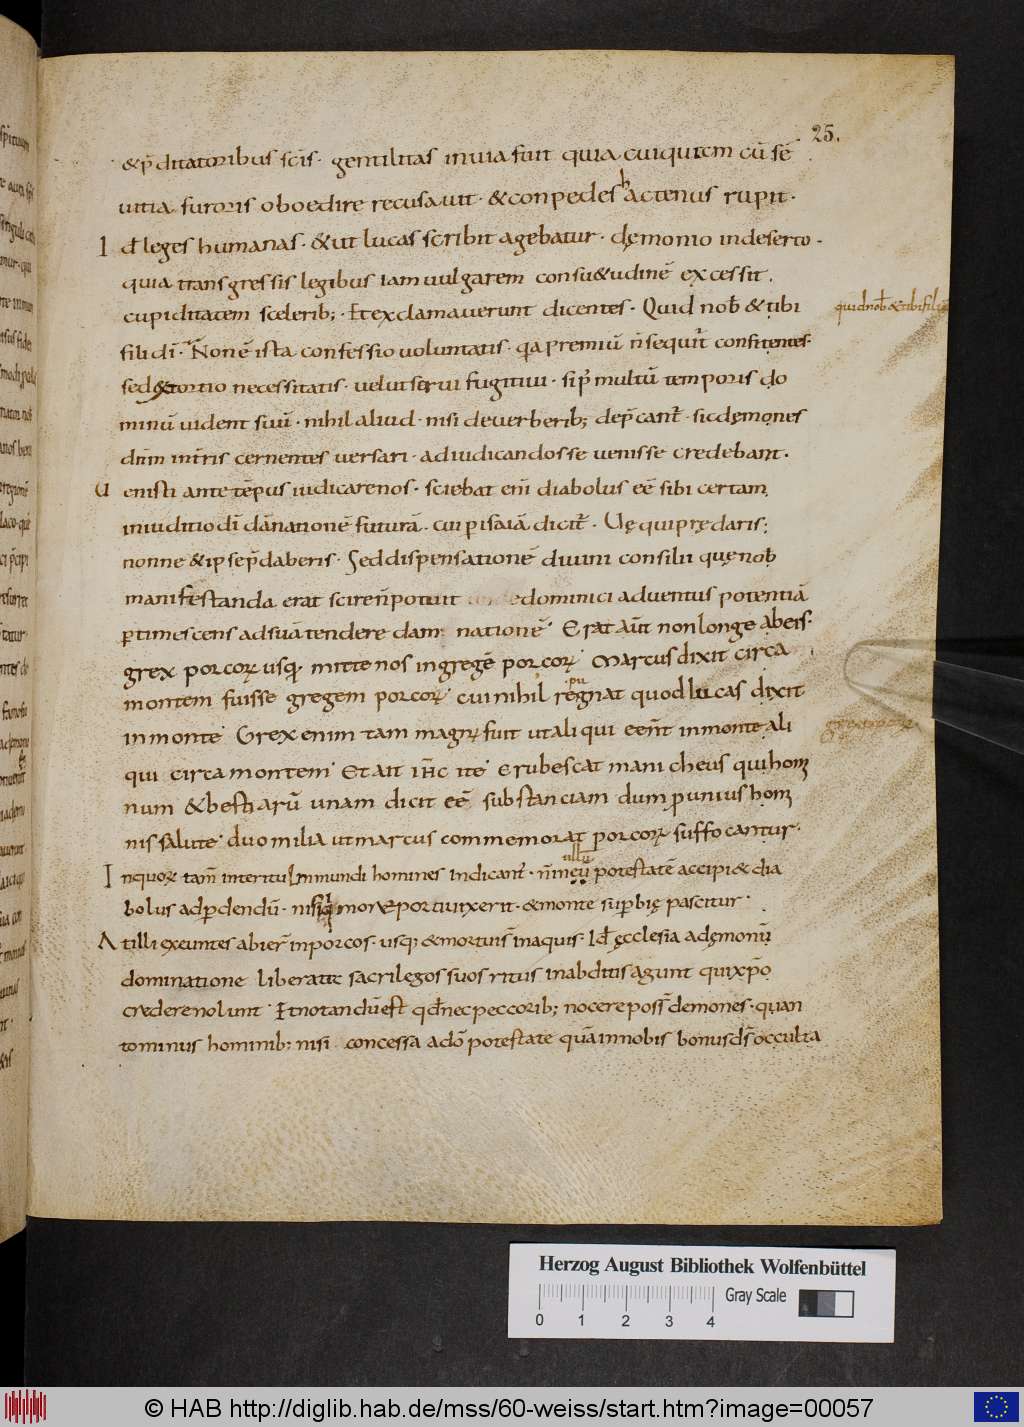 25.
&p̄ditatoribus scīs· gentilitas inuia fuit quia cuiqutem cū sē
uitia furoris oboedire recusauit· &conpedes hactenus rupit·
Id̄ leges humanas· &ut lucas scribit agebatur· dęmonio indeserto·
quia transgressis legibus iam uulgarem consu&udinē excessit·
cupiditatem scelerib; · Et exclamauerunt dicentes· Quid nob̄ & tibi
quid nob̄ & tibi fili
fili dī· Nonē ista confessio uoluntatis· qa premiū n̄ sequit̄ confitentes·
sed &tortio necessitatis· uelut serui fugitiui· sip̄ multū temporis do
minū uident suū· nihil aliud· nisi deuerberib; dep̄cant̄· sic dęmones
dn̄m in tr̄ris cernentes uersari· ad iudicandos se uenisse credebant·
Uenisti ante tēpus iudicare nos· sciebat eni̅ diabolus eē sibi certam
in iuditio dī dānationē futurā· cui p isaiā dicit̄· Uę qui prędaris;
nonne & ipse p̄daberis· Sed dispensationē diuini consilii quę nob̄
manifestanda erat scire n̄ potuit dominici aduentus potentiā
ptimescens ad suā tendere dam nationē· Erat aūt non longe ab eis·
grex porcoꝝ usq· mitte nos in gregē porcoꝝ· Marcus dixit circa
montem fuisse gregem porcoꝝ· cui nihil repugnat quod lucas dixit
in monte· Grex enim tam magnꝰ fuit ut aliqui eent̄ in monte ali
qui circa montem· Et ait ih̄c ite· Erubescat manicheus qui hom
num & bestiarū unam dicit eē substanciam dum p unius homi
nis salute· duo milia ut marcus commemorat porcoꝝ suffocantur·
Inquoꝝ tam̄ interitu inmundi homines indicant̄· n̄ in eū illū potestatē accipi& dia
bolus ad pdendū· nisi qui more porci uixerit· & in monte sup̄bię pascitur·
At illi exeuntes abier̄ in porcos· usq; & mortui s̄ in aquis· Id̄ ęcclesia a dęmonū
dominatione liberata sacrilegos suos ritus in abditis agunt qui xp̄o
credere nolunt· Et notandū est qd̄ nec peccorib; nocere poss̄ demones· quan
tominus hominib; nisi concessa a dō potestate quā in nobis bonus ds̄ occulta
Herzog August Bibliothek Wolfenbüttel
Gray Scale
0 1 2 3 4
© HAB http://diglib.hab.de/mss/60-weiss/start.htm?image=00057